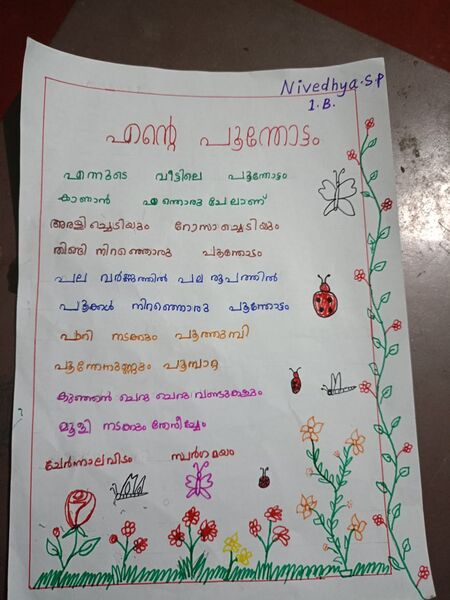 Nivedhya.S.P
1.B.
എന്റെ പൂന്തോട്ടം
എന്നുടെ വീട്ടിലെ പൂന്തോട്ടം
കാണാൻ എന്തൊരു ചേലാണ്
അരളിച്ചെടിയും റോസാച്ചെടിയും
തിങ്ങി നിറഞ്ഞൊരു പൂന്തോട്ടം
പല വർണ്ണത്തിൽ പല രൂപത്തിൽ
പൂക്കൾ നിറഞ്ഞൊരു പൂന്തോട്ടം
പാറി നടക്കും പൂത്തുമ്പി
പൂന്തേനുണ്ണും പൂമ്പാറ്റ
കുഞ്ഞൻ ചെറു ചെറു വണ്ടുകളും
മൂളി നടക്കും തേനീച്ചേം
ചേർന്നാലവിടം സ്വർഗമയം